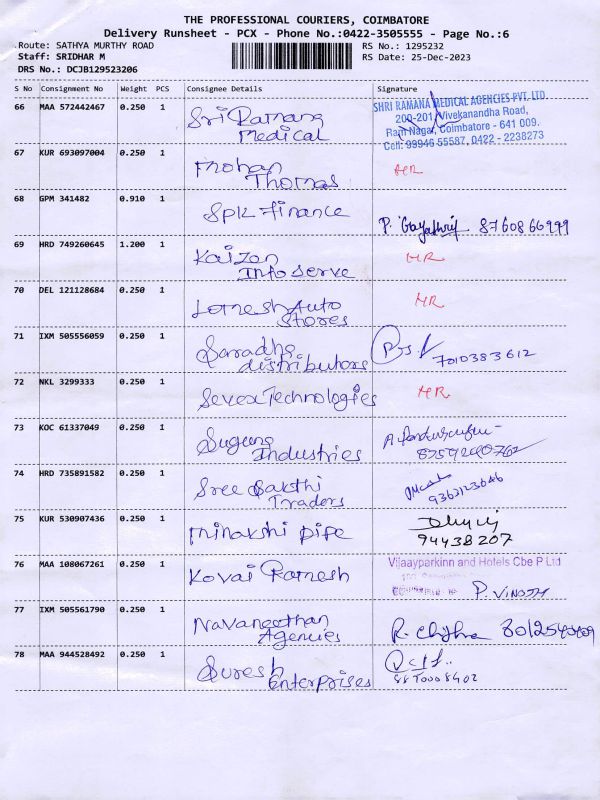 THE PROFESSIONAL COURIERS, COIMBATORE
Delivery Runsheet - PCX - Phone No.:0422-3505555 - Page No.:6
Route: SATHYA MURTHY ROAD
RS No.: 1295232
Staff: SRIDHAR M
RS Date: 25-Dec-2023
DRS No.: DCJB129523206
S No Consignment No Weight PCS Consignee Details Signature
66 MAA 572442467 0.250 1 Sri Ramana
Medical
SHRI RAMANA MEDICAL AGENCIES PVT. LTD
200-201, Vivekanandha Road,
Ram Nagar, Coimbatore - 641 009.
Cell: 99946 55587, 0422 - 2238273
67 KUR 693097004 0.250 1 Mohan
Thomas
MR
68 GPM 341482 0.910 1 Spk Finance
P. Gayathri 8760866999
69 HRD 749260645 1.200 1 Kaizon
Infoserve
MR
70 DEL 121128684 0.250 1 Lomesh Auto
Stores
MR
71 IXM 505556059 0.250 1 Saradha
distributors
7010383612
72 NKL 3299333 0.250 1 Sevea Technologies
MR
73 KOC 61337049 0.250 1 Suguna
Industries
8759240762
74 HRD 735891582 0.250 1 Sree Sakthi
Traders
9363123646
75 KUR 530907436 0.250 1 Minakshi pipe
94438207
76 MAA 108067261 0.250 1 Kovai Ramesh
Vijaayparkinn and Hotels Cbe P Ltd
P. VINOTH
77 IXM 505561790 0.250 1 Navaneethan
Agencies
R. Chithra
78 MAA 944528492 0.250 1 Suresh
Enterprises
8870008402